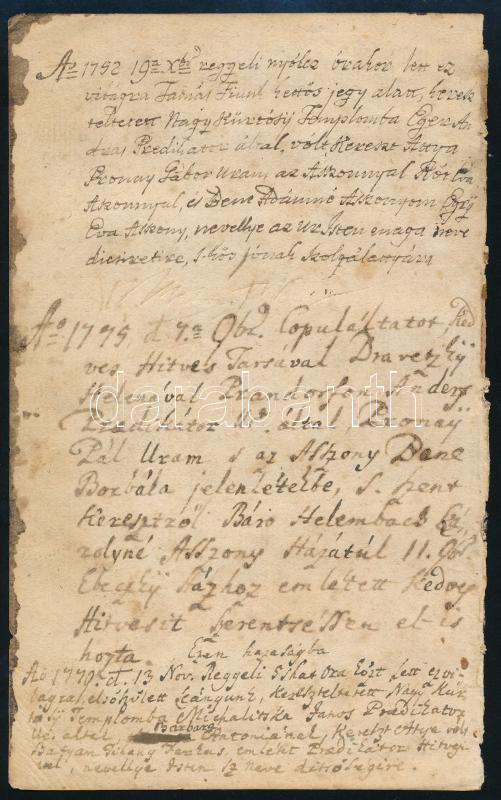 Ao 1752 19a Xbr reggeli nyólcz órakor lett ez
világra Tamás Fiunk kettős jegy alatt, keresz
teltetett Nagy Kürtösÿ Templomba Eger An
dras Predikator által, vólt Kereszt Attya
Pronay Gábor Uram az Asszonnyal
Aszonnyal, és Bene Ádámné Aszonyom
Eva Aszony, nevellye az Ur Isten maga neve
dicsiretire, s hős
Ao 1775 d. 7a 9br. Copuláltatot Ked
ves Hitves Tarsával Draveczkÿ
Helenával Prandorfon Anders
Predikátor Ur által, Pronaÿ
Pál Uram s az Aszony Bene
Borbála jelenlétébe, s. szent
Keresztről Báro Helembach
rolyné Asszony Házátúl 11. 9br
Ebeczkÿ házhoz emletett Kedves
Hitvesit szerentséssen el is
hozta. Ezen hazaságba
Ao 177 d. 13 Nov. Reggeli 5 hat Ora közt lett e vi
lagra első szülött Leányunk, Kereszteltetett Nagy Kür
tösÿ Templomba Michalitska Janos Prædikator
Ur által Barbara Antoniának, Kereszt Attya volt
Farkas, emletet Prædikátor Hitvesi
vel, nevellye Isten Sz neve ditsőségire.
darabanth